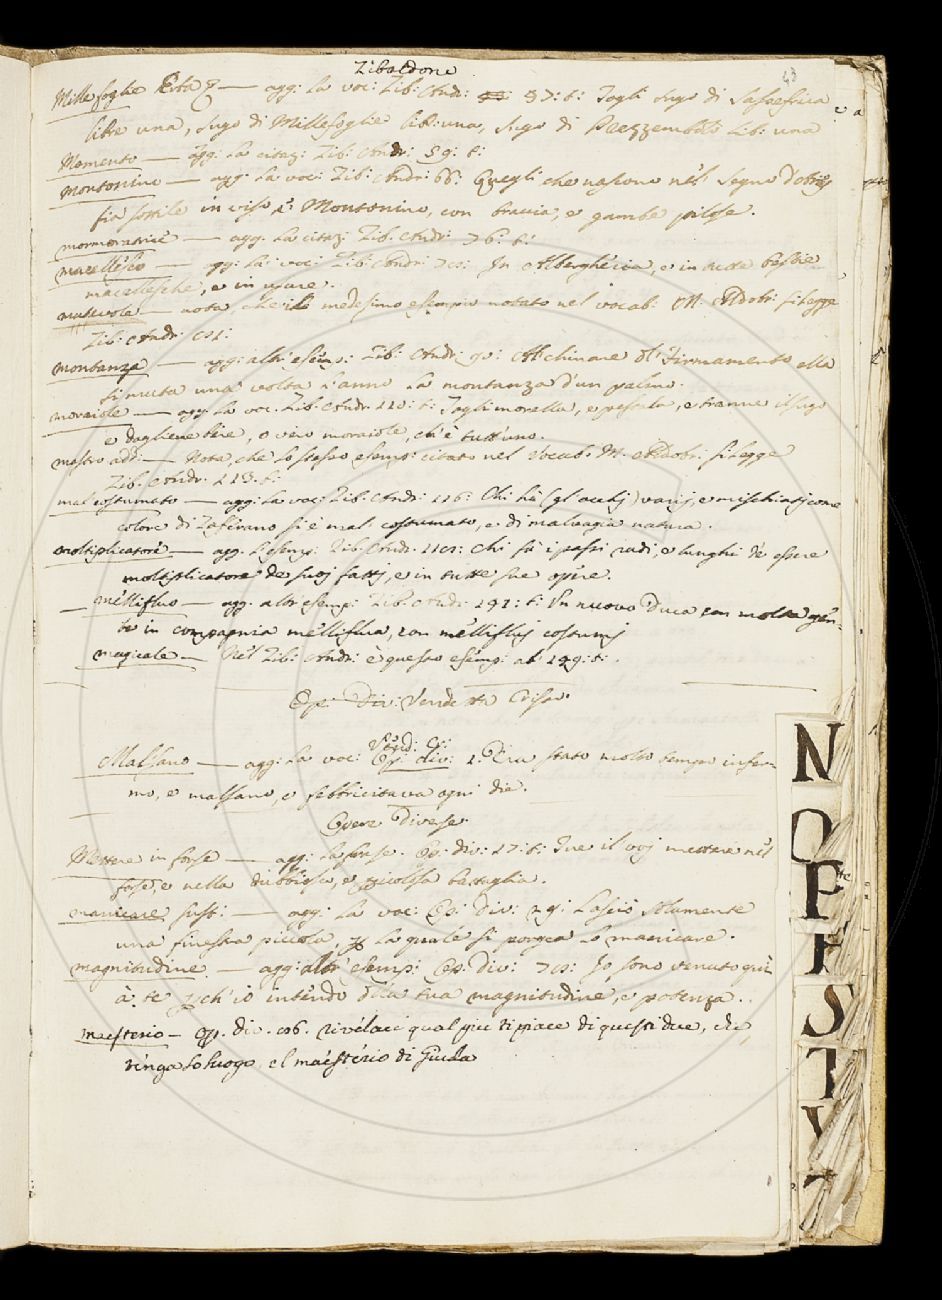 Zibaldone
43
Mille foglie Erba — agg: la voc: Zib: Andr: 57: t: Togli sugo di Sassefrica
libre una, sugo di Millefoglie lib: una, sugo di Prezzembolo Lib: una
Momento — agg: la citaz: Zib: Andr: 59: t:
Montonino — agg: la voc: Zib: Andr: 66: Quegli che nascono nel segno
sia sottile in viso, e Montonino, con braccia, e gambe pilose.
mormoratrice — agg: la citaz: Zib: Andr: 76: t:
macellesco — agg: la: voc: Zib: Andr: In Alberghéria, e in bestie
macellesche, e in usare.
— nota, che il medesimo esempio notato nel vocab: M. Aldobr: si legge
Zib: Andr:
montanza — agg: altr'esemp: Zib: Andr: 90: Al chinare del Firmamento ella
si muta una volta l'anno la montanza d'un palmo.
moraiole — agg: la voc: Zib: Andr: 110: t: Togli morella, e pestala, e tranne il sugo
e dagliene bére, o vero moraiole, ch'è tutt'uno.
mastro add: — Nota, che lo stesso esemp: citato nel Vocab: M. Aldobr: si legge
Zib: Andr: 113: t:
mal costumato — agg: la voc: Zib: Andr: 116: Chi hà (gl'occhj) varij, e mischiatj come
colore di Zafférano si è mal costumato, e di malvagia natura.
moltiplicatore — agg: l'esemp: Zib: Andr: Chi fà i passi radi, e lunghi dé essere
moltiplicatore de suoj fattj, e in tutte sue opére.
mellifluo — agg: altr'esemp: Zib: Andr: 191: t: Un nuovo Duca con molta gén-
te in compagnia méllíflua, con melliflui costumj
magicale — Nel Zib: Andr: è questo esémp: al 149: t:.
Op: Div: Vendetta Crist:
Vend: Cr:
Malsano — agg: la voc: Op: div: 1. Era stato molto tempo infer-
mo, e malsano, e febbricitava ogni die.
Opere Diverse.
Mettere in forse — agg: la frase. Op: div: 17: t: Tue il voj mettere nel
forse, e nella dubbiosa, e pericolosa battaglia.
manicare sust: — agg: la voc: Op: Div: 29: Lasciò solamente
una finestra piccola, per la quale si porgea lo manicare.
magnitudine — agg: altr'esemp: Op: Div: Io sono venuto quì
à te perch'io inténdo della tua magnitudine, e potenza.
maesterio — Op. div. rivélaci qual piu ti piace di questi due, che
ténga lo luogo, el maéstério di Giuda
N
O
P
S
T
V